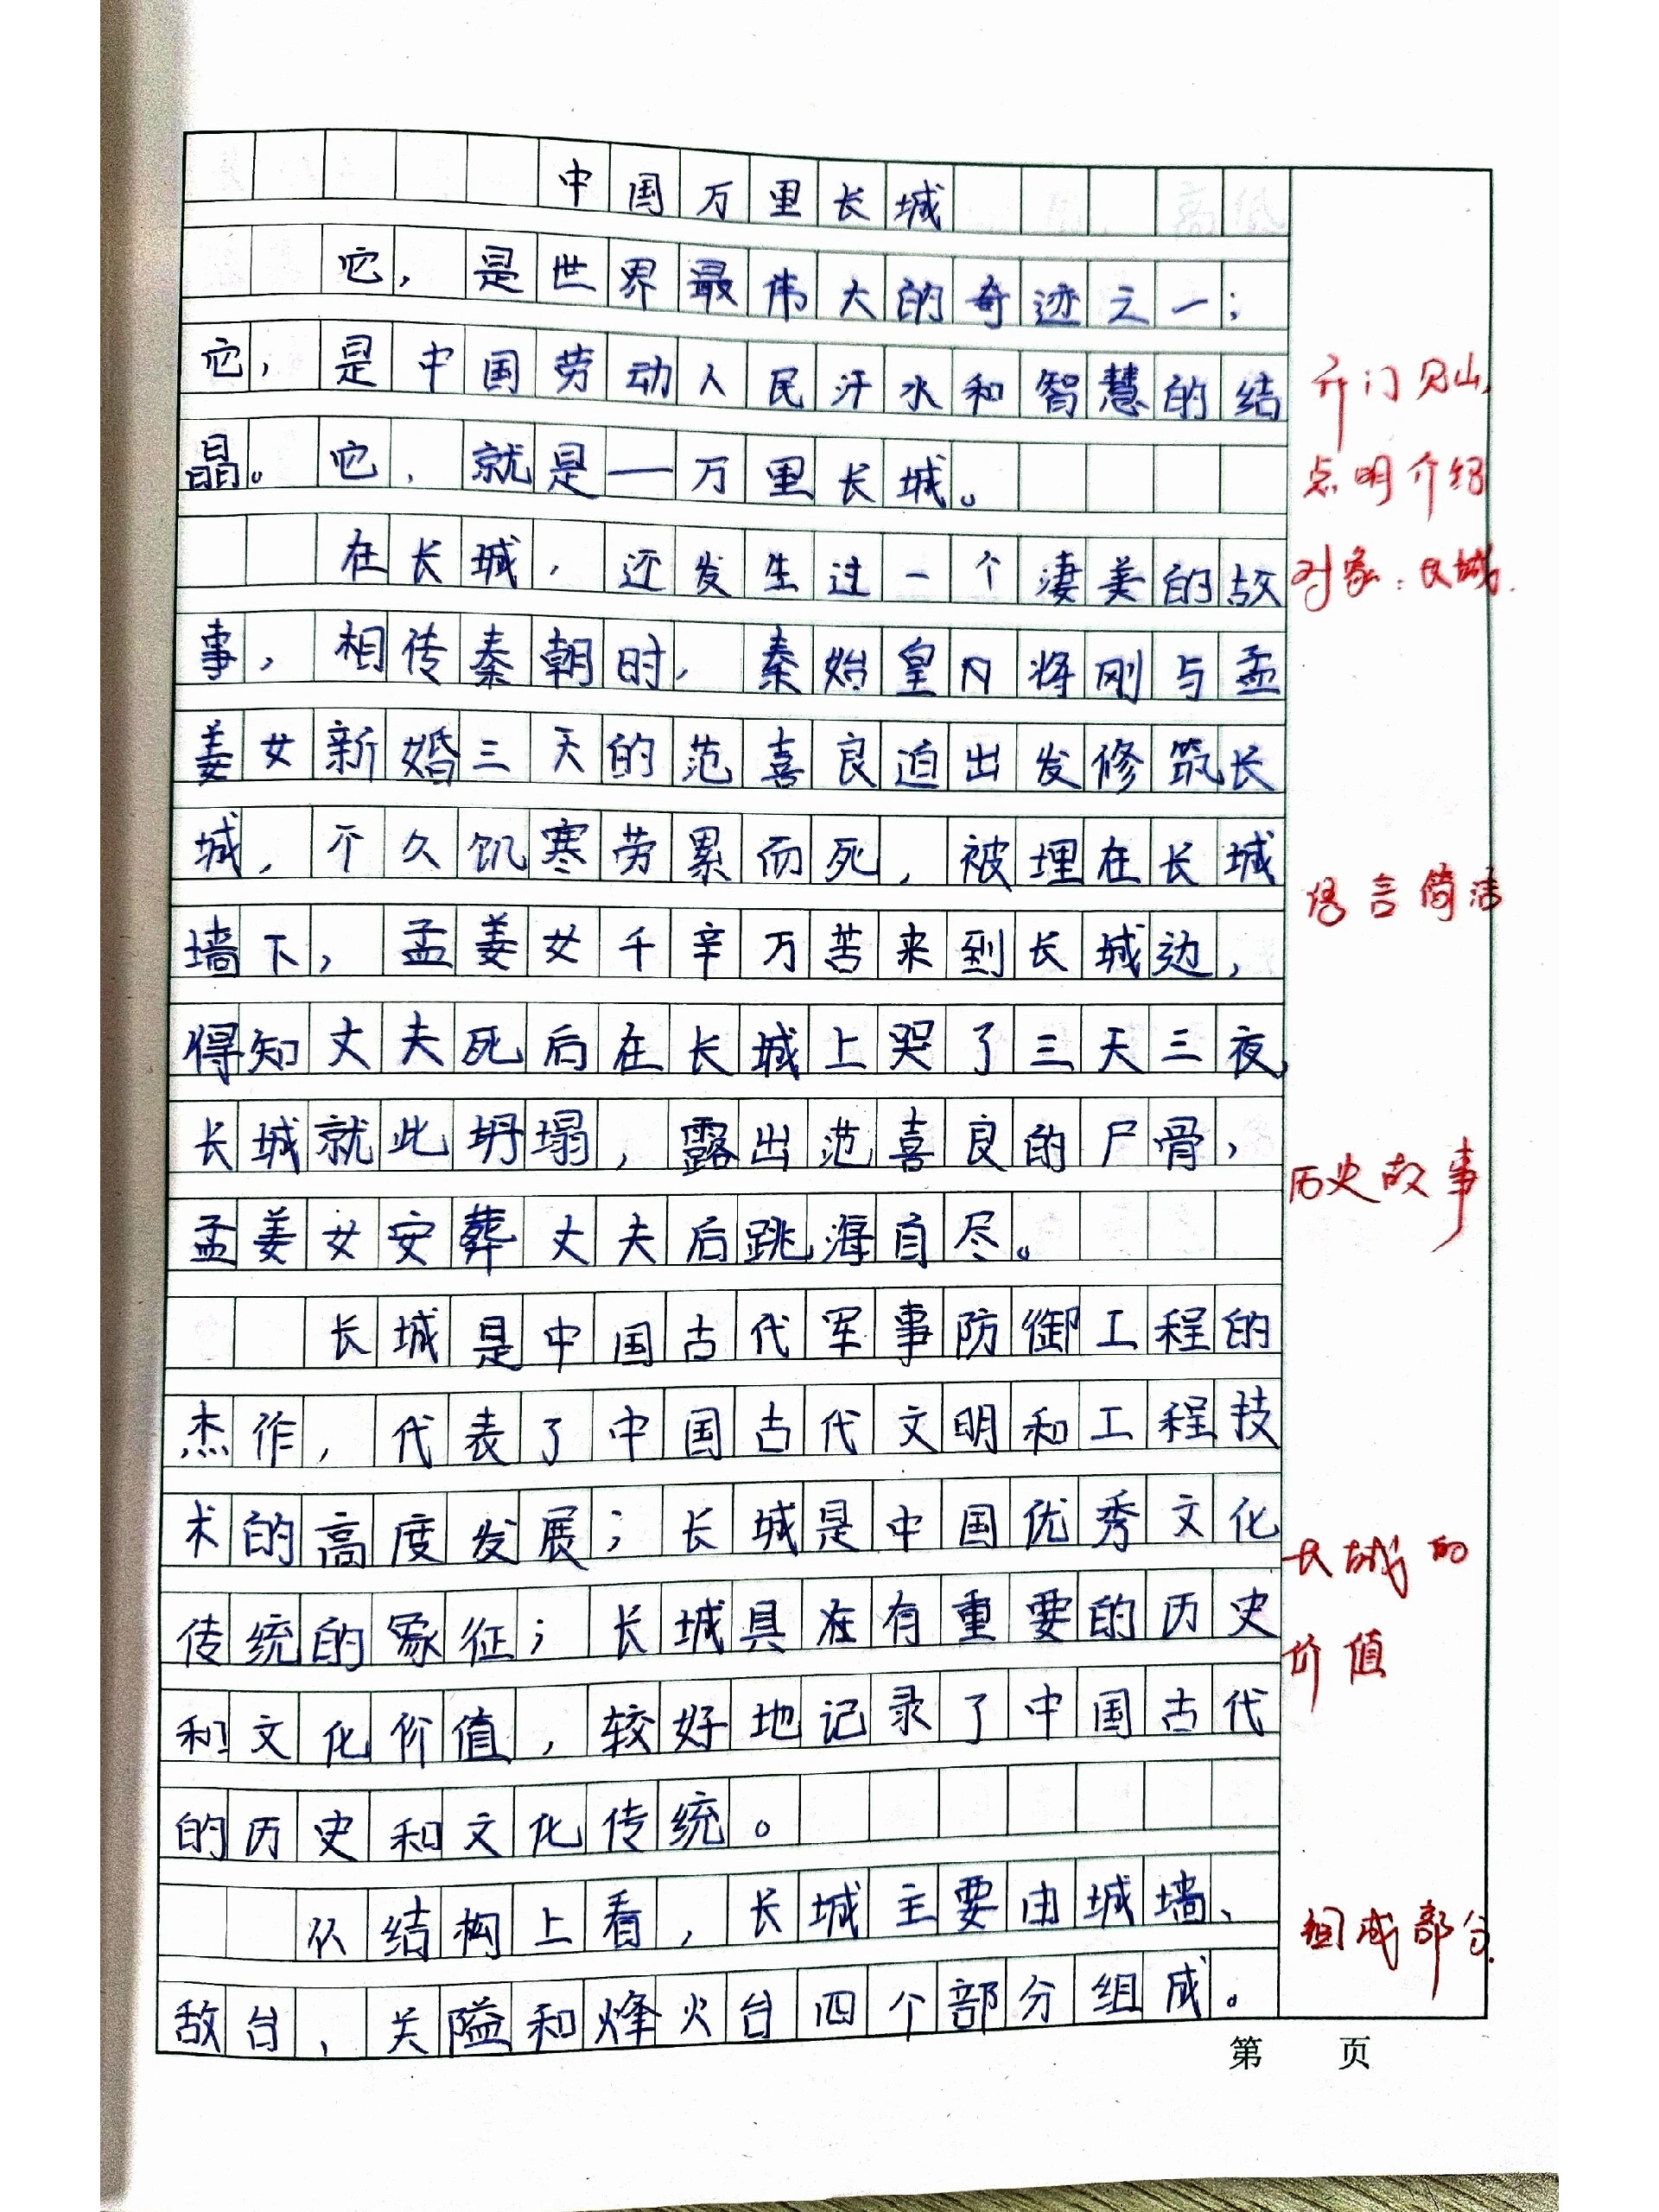 中国万里长城
它，是世界最伟大的奇迹之一；
它，是中国劳动人民汗水和智慧的结
晶。它，就是—万里长城。
在长城，还发生过一个凄美的故
事，相传秦朝时，秦始皇内将刚与孟
姜女新婚三天的范喜良迫出发修筑长
城，个久饥寒劳累而死，被埋在长城
墙下，孟姜女千辛万苦来到长城边，
得知丈夫死后在长城上哭了三天三夜，
长城就此坍塌，露出范喜良的尸骨，
孟姜女安葬丈夫后跳海自尽。
长城是中国古代军事防御工程的
杰作，代表了中国古代文明和工程技
术的高度发展；长城是中国优秀文化
传统的象征；长城具在有重要的历史
和文化价值，较好地记录了中国古代
的历史和文化传统。
从结构上看，长城主要由城墙、
敌台、关隘和烽火台四个部分组成。
开门见山，
点明介绍
对象：长城．
语言简洁
历史故事
长城的
价值
组成部分．
第 页